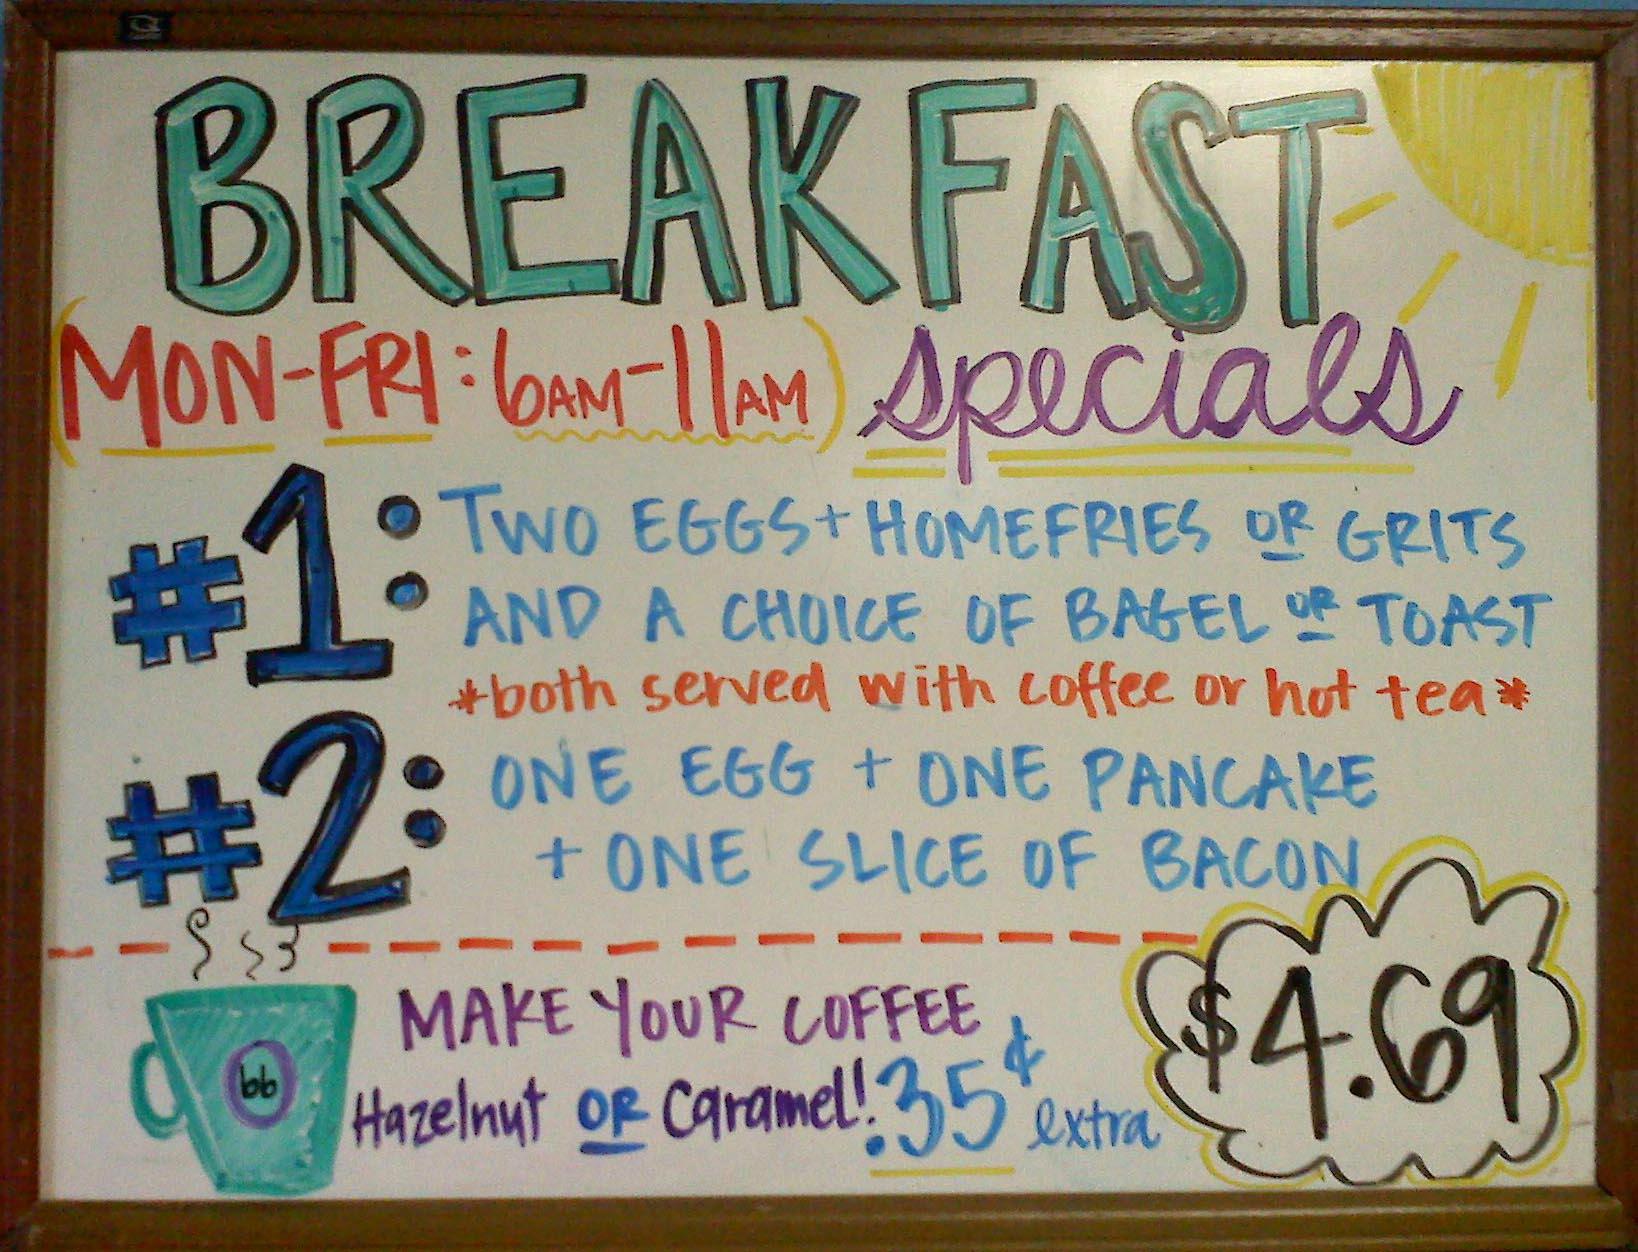 BREAKFAST
(MON-FRI: 6AM-11AM) specials
#1: TWO EGGS + HOMEFRIES OR GRITS
AND A CHOICE OF BAGEL OR TOAST
*both served with coffee or hot tea*
#2: ONE EGG + ONE PANCAKE
+ ONE SLICE OF BACON
$4.69
MAKE YOUR COFFEE
Hazelnut OR Caramel! .35¢ extra
bb